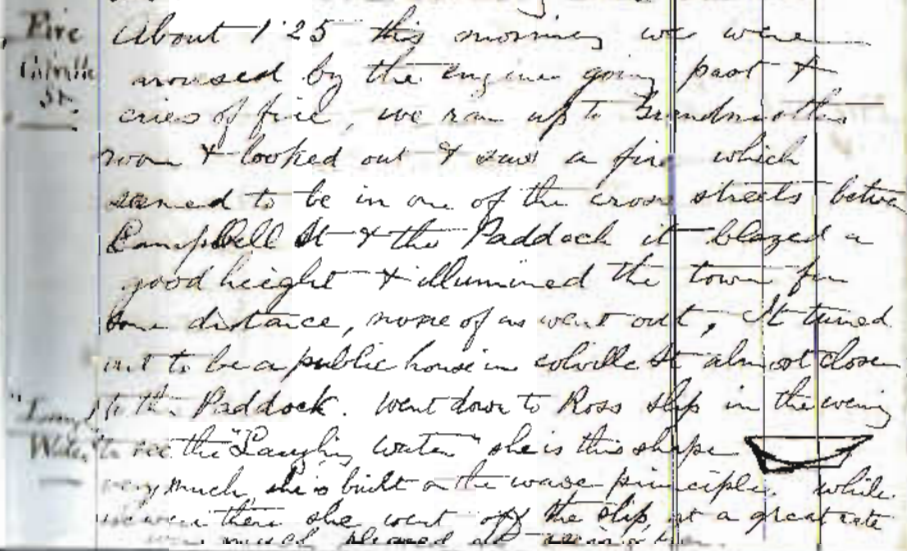 Fire
Colville
St
About 1.25 this morning we were
aroused by the engine going past &
cries of fire, we ran up to Grandmothers
room & looked out & saw a fire which
seemed to be in one of the cross streets between
Campbell St & the Paddock it blazed a
good height & illumined the town for
some distance, none of us went out, It turned
out to be a public house in colville St almost close
to the Paddock. Went down to Ross slip in the evening
Water"
to see the "Laughing Water" she is this shape
very much, she is built on the wave principle. While
we were there she went off the slip, at a great rate
much pleased at